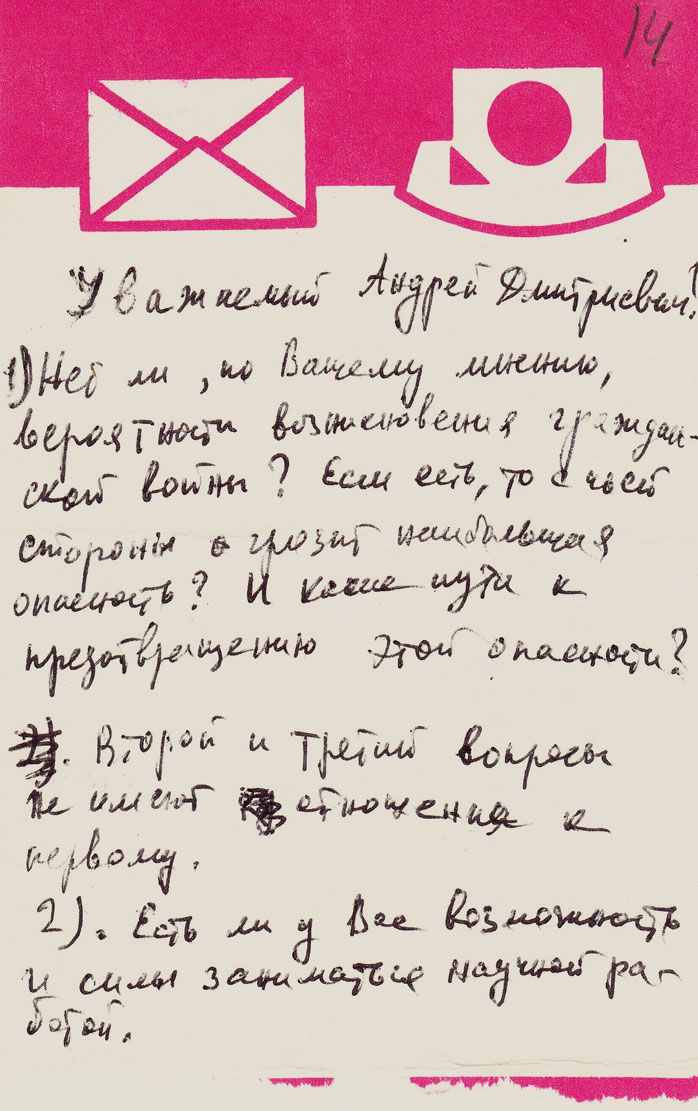 14
Уважаемый Андрей Дмитриевич!
1) Нет ли, по Вашему мнению,
вероятности возникновения граждан-
ской войны? Если есть, то с чьей
стороны грозит наибольшая
опасность? И какие пути к
предотвращению этой опасности?
Второй и третий вопросы
не имеют отношения к
первому.
2). Есть ли у Вас возможность
и силы заниматься научной ра-
ботой.